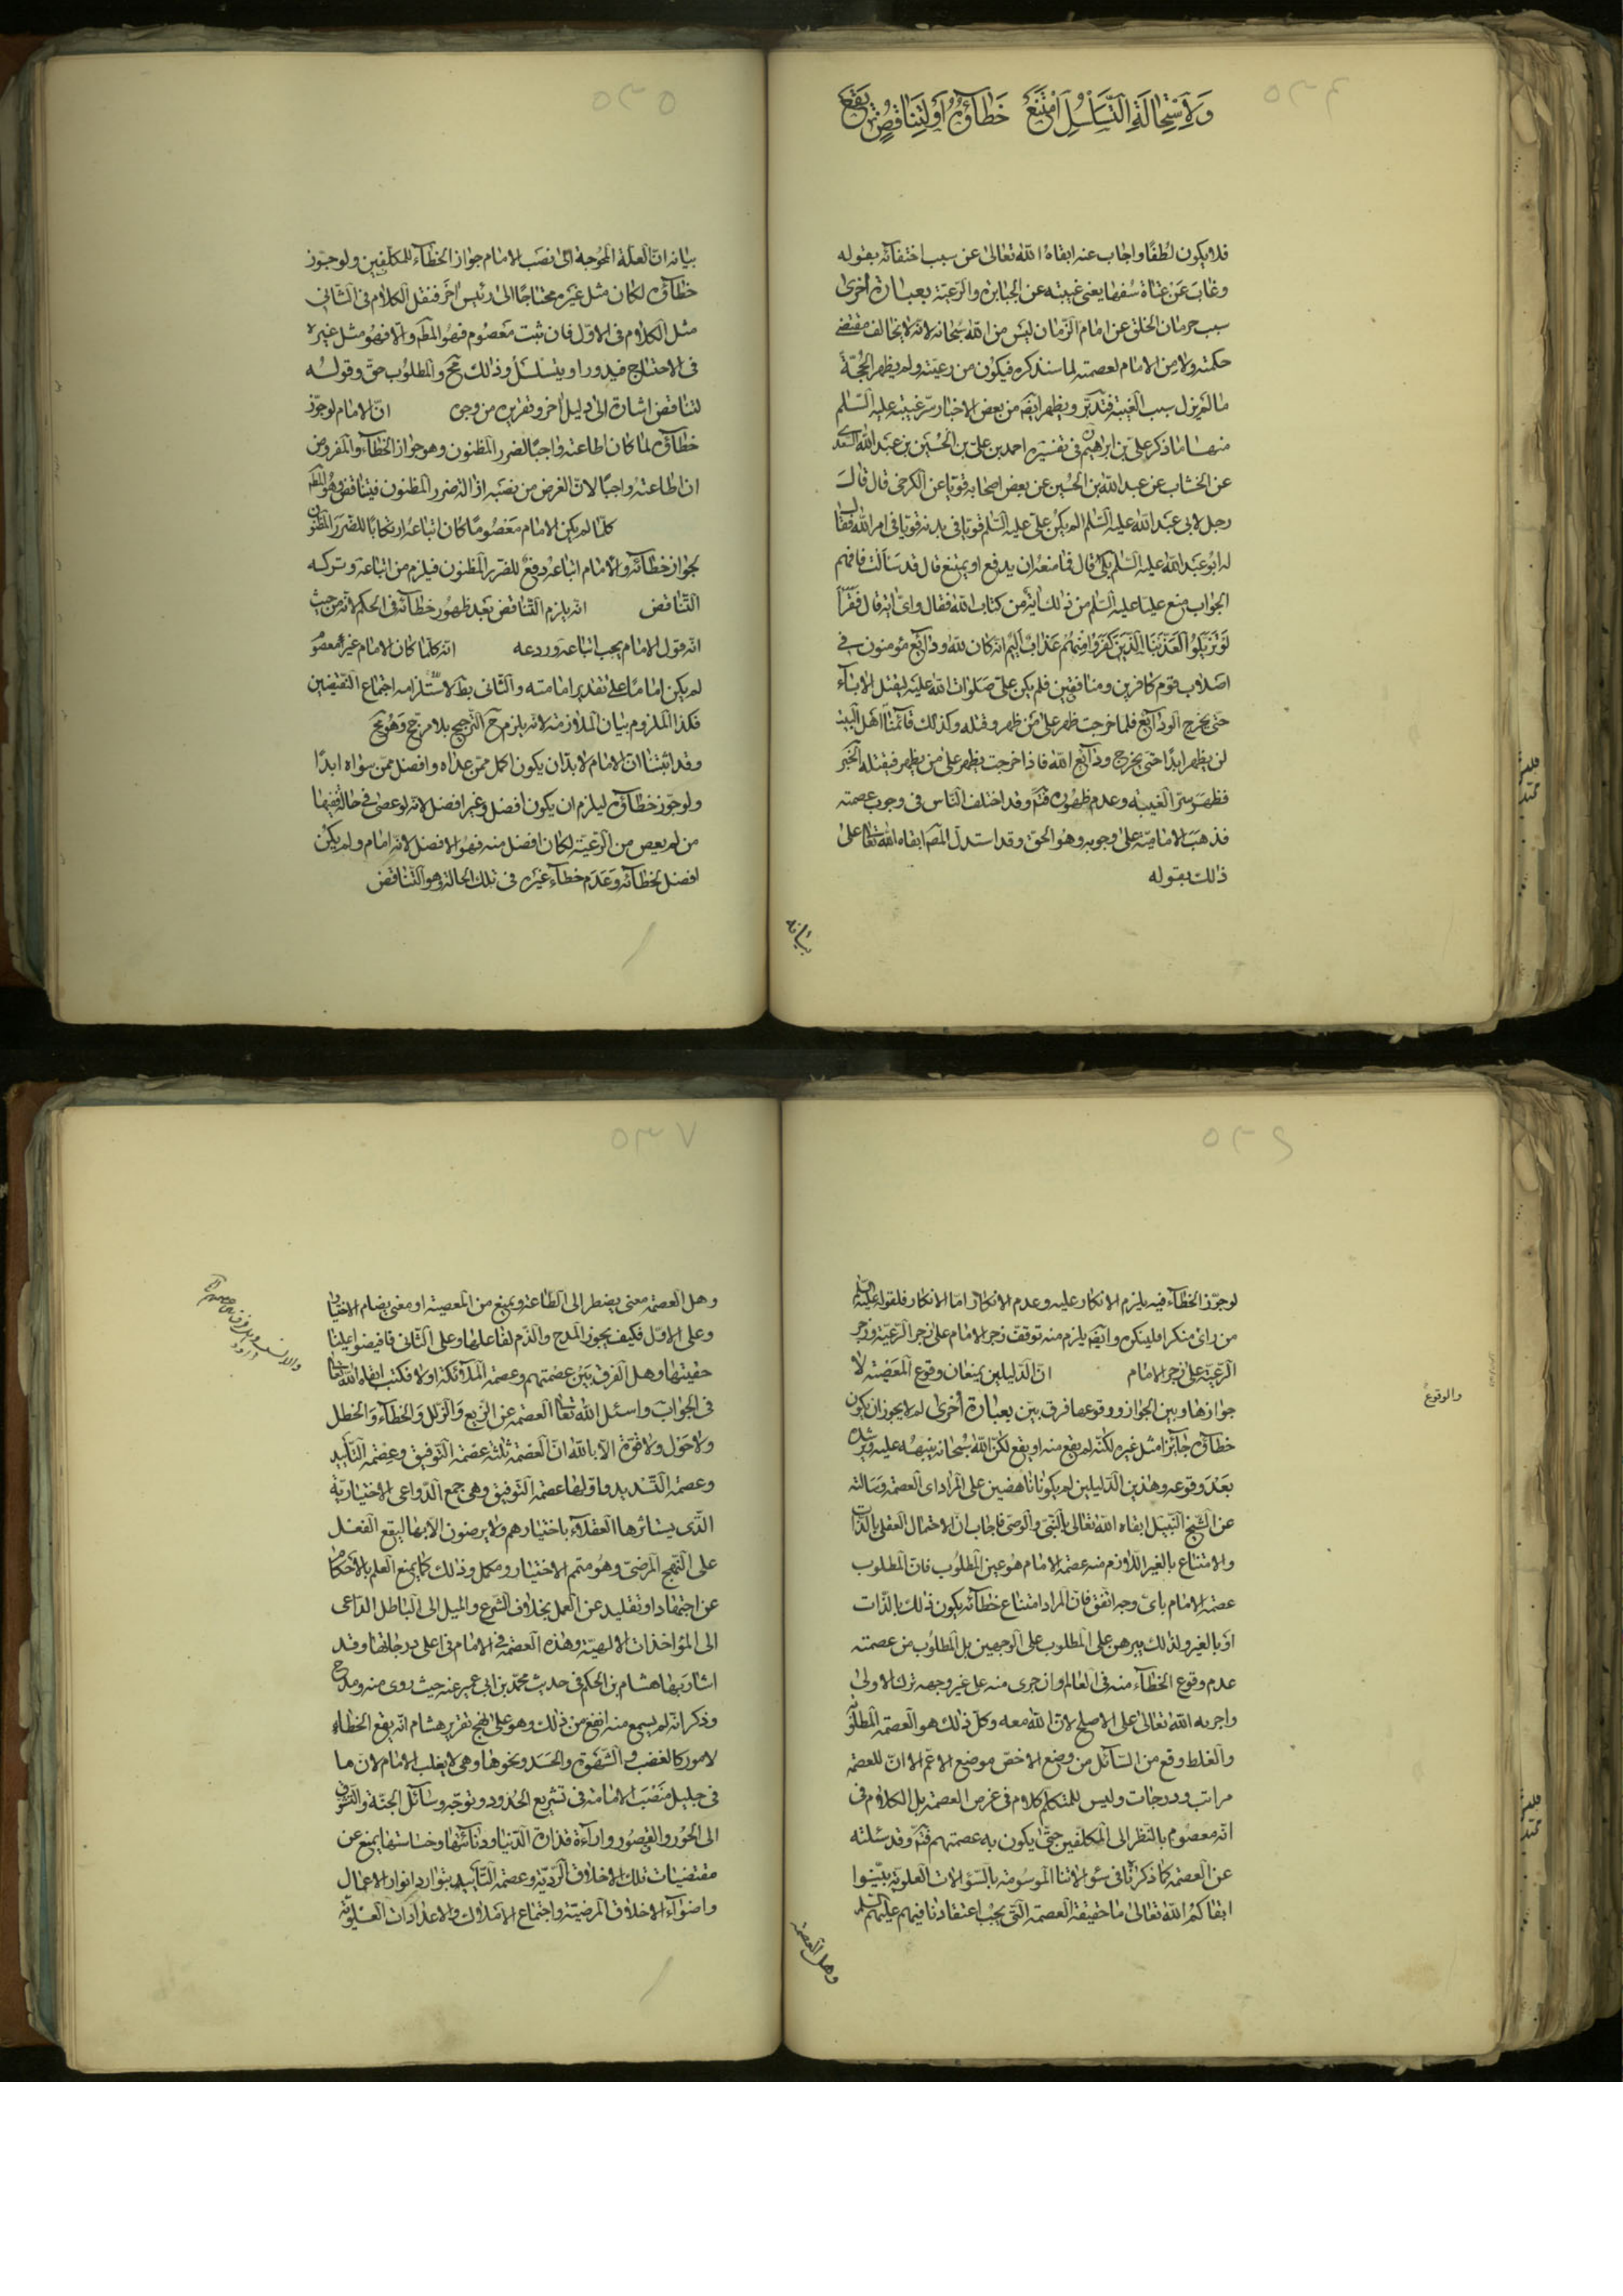 ٥٣٤
وَلِاسْتِحَالَةِ التَّسَلْسُلِ امْتَنَعَ خَطَاؤُهُ أَوْ لِتَنَاقُضٍ يَقَعُ
فلا يكون لطفا واجاب عنه ابقاه الله تعالى عن سبب اختفائه بقوله
وغاب عن عتاة سفها يعنى غيبته عن الجبابرة والرعية بعبارة اخرى
سبب حرمان الخلق عن امام الزمان ليس من الله سبحانه لانه لا يخالف مقتضى
حكمته ولا من الامام لعصمته لما سنذكره فيكون من رعيته ولم يظهر الحجة
ما لم يزل سبب الغيبة فتدبر ويظهر ايضا من بعض الاخبار سر غيبته عليه السلم
منها ما ذكر على بن ابراهيم فى تفسيره احمد بن على بن الحسين بن عبد الله السعدى
عن الخشاب عن عبد الله بن الحسين عن بعض اصحابه قوتا عن الكرخى قال قال
رجل لابى عبد الله عليه السلم الم يكن على عليه السلم قويا فى بدنه قويا فى امر الله فقال
له ابو عبد الله عليه السلم بلى قال فما منعه ان يدفع او يمتنع قال قد سالت فافهم
الجواب منع عليا عليه السلم من ذلك اية من كتاب الله فقال واى اية قال فقرأ
لَوْ تَزَيَّلُوا لَعَذَّبْنَا الَّذِينَ كَفَرُوا مِنْهُمْ عَذَابًا اَلِيمًا انه كان لله ودائع مؤمنون فى
اصلاب قوم كافرين ومنافقين فلم يكن على صلوات الله عليه ليقتل الاباء
حتى يخرج الودائع فلما خرجت ظهر على من ظهر وقتله وكذلك قائمنا اهل البيت
لن يظهر ابدا حتى يخرج ودائع الله فاذا خرجت يظهر على من يظهر فيقتله الخبر
فظهر سر الغيبة وعدم ظهوره فتم وقد اختلف الناس فى وجوب عصمته
فذهب الامامية على وجوبه وهو الحق وقد استدل المص ابقاه الله تعالى على
ذلك بقوله
بيانه
٥٣٥
بيانه ان العلة المحوجة الى نصب الامام جواز الخطاء للمكلفين ولو جوز
خطاؤه لكان مثل غيره محتاجا الى رئيس اخر فننقل الكلام فى الثانى
مثل الكلام فى الاول فان ثبت معصوم فهو المطم والا فهو مثل غيره
فى الاحتياج فيدور او يتسلسل وذلك مح والمطلوب حق وقوله
لتناقض اشارة الى دليل اخر وتقريره من وجوه ان الامام لو جوز
خطاؤه لما كان اطاعته واجبا لضرر المظنون وهو جواز الخطاء والمفروض
ان اطاعته واجبا لان الغرض من نصبه ازالة ضرر المظنون فيتناقض وهو المطم
كلما لم يكن الامام معصوما كان اتباعه ارتكابا للضرر المظنون
لجواز خطائه والامام اتباعه دفع للضرر المظنون فيلزم من اتباعه وتركه
التناقض انه يلزم التناقض بعد ظهور خطائه فى الحكم لانه من حيث
انه قول الامام يجب اتباعه وردعه انه كلما كان الامام غير معصوم
لم يكن اماما على تقدير امامته والثانى بط لاستلزامه اجتماع النقيضين
فكذا الملزوم بيان الملازمة لانه يلزم ح الترجيح بلا مرجح وهو مح
وقد اثبتنا ان الامام لا بد ان يكون اكمل ممن عداه وافضل ممن سواه ابدا
ولو جوز خطاؤه ليلزم ان يكون افضل وغير افضل لانه لو عصى فى حال ففيها
من لم يعص من الرعية لكان افضل منه فهو الافضل لانه امام ولم يكن
افضل لخطائه وعدم خطاء غيره فى تلك الحالة وهو التناقض
٥٣٦
لو جوز الخطاء فيه يلزم الانكار عليه وعدم الانكار اما الانكار فلقوله عليه السلم
من راى منكرا فلينكره وايضا يلزم منه توقف زجر الامام على زجر الرعية وزجر
الرعية على زجر الامام ان الدليلين يمنعان وقوع المعصية لا
جوازها وبين الجواز ووقوعها فرق بين بعبارة اخرى لم لا يجوز ان يكون
والوقوع
خطاؤه جائزا مثل غيره لكنه لم يقع منه او يقع لكن الله سبحانه ينبهه عليه ويرشده
بعد وقوعه وهذين الدليلين لم يكونا ناهضين على المراد اى العصمة وسالته
عن الشيخ النبيل ابقاه الله تعالى بالنبى والوصى فاجاب ان الاحتمال العقلى بالذات
والامتناع بالغير اللازم منه عصمة الامام هو عين المطلوب فان المطلوب
عصمة الامام باى وجه اتفق فان المراد امتناع خطائه يكون ذلك بالذات
او بالغير ولذلك يبرهن على المطلوب على الوجهين بل المطلوب من عصمته
عدم وقوع الخطاء منه فى العالم وان جرى منه على غير وجهه ترك الاولى
واجر به الله تعالى على الاصلح لان الله معه وكل ذلك هو العصمة المطلوبة
والغلط وقع من السائل من وضع الاخص موضع الاعم الا ان للعصمة
مراتب ودرجات وليس للمتكلم كلام فى عرض العصمة بل الكلام فى
انه معصوم بالنظر الى المكلفين حتى يكون به عصمتهم فتم وقد سئلته
عن العصمة كما ذكرنا فى سؤالاتنا الموسومة بالسؤالات العلوية بينوا
ابقاكم الله تعالى ما حقيقة العصمة التى يجب اعتقادنا فيهم عليهم السلم
وهل العصمة
٥٣٧
وهل العصمة معنى يضطر الى الطاعة ويمنع من المعصية او معنى يضام الاختيار
وعلى الاول فكيف يجوز المدح والذم لفاعلها وعلى الثانى فافيضوا علينا
حقيتها وهل الفرق بين عصمتهم وعصمة الملائكة اولا فكتب ابقاه الله تعالى
فى الجواب واسئل الله تعالى العصمة عن الزيع والزلل والخطاء والخطل
ولا حول ولا قوة الا بالله ان العصمة ثلثة عصمة التوفيق وعصمة التأييد
وعصمة التسديد واولها عصمة التوفيق وهى جمع الدواعى الاختيارية
الذى يستاثرها العقلاء باختيارهم ولا يرضون الا بها ليقع الفعل
على النهج المرضى وهو متمم الاختيار ومكمل وذلك كما يمنع العلم بالاحكام
عن اجتهاد او تقليد عن العمل بخلاف الشرع والميل الى الباطل الداعى
الى المؤاخذات الالهية وهذه العصمة فى الامام فى اعلى درجاتها وقد
اشار بها هشام بن الحكم فى حديث محمد بن ابى عمير عنه حيث روى منه ومدح
وذكر انه لم يسمع منه انفع من ذلك وهو على نهج تقرير هشام انه يقع الخطاء
لامور كالغضب والشهوة والحسد ونحوها وهى لا يغلب الامام لان ما
فى جليل منصب الامامة فى تشريع الحدود وتوجه وسائل الجنة والشوق
الى الحور والقصور واراءة قذارة الدنيا ودنائتها وخساستها يمنع عن
مقتضيات تلك الاخلاق الردية وعصمة التأييد بتوارد انوار الاعمال
واضواء الاخلاق المرضية واجتماع الاملاك والاعدادات العلوية